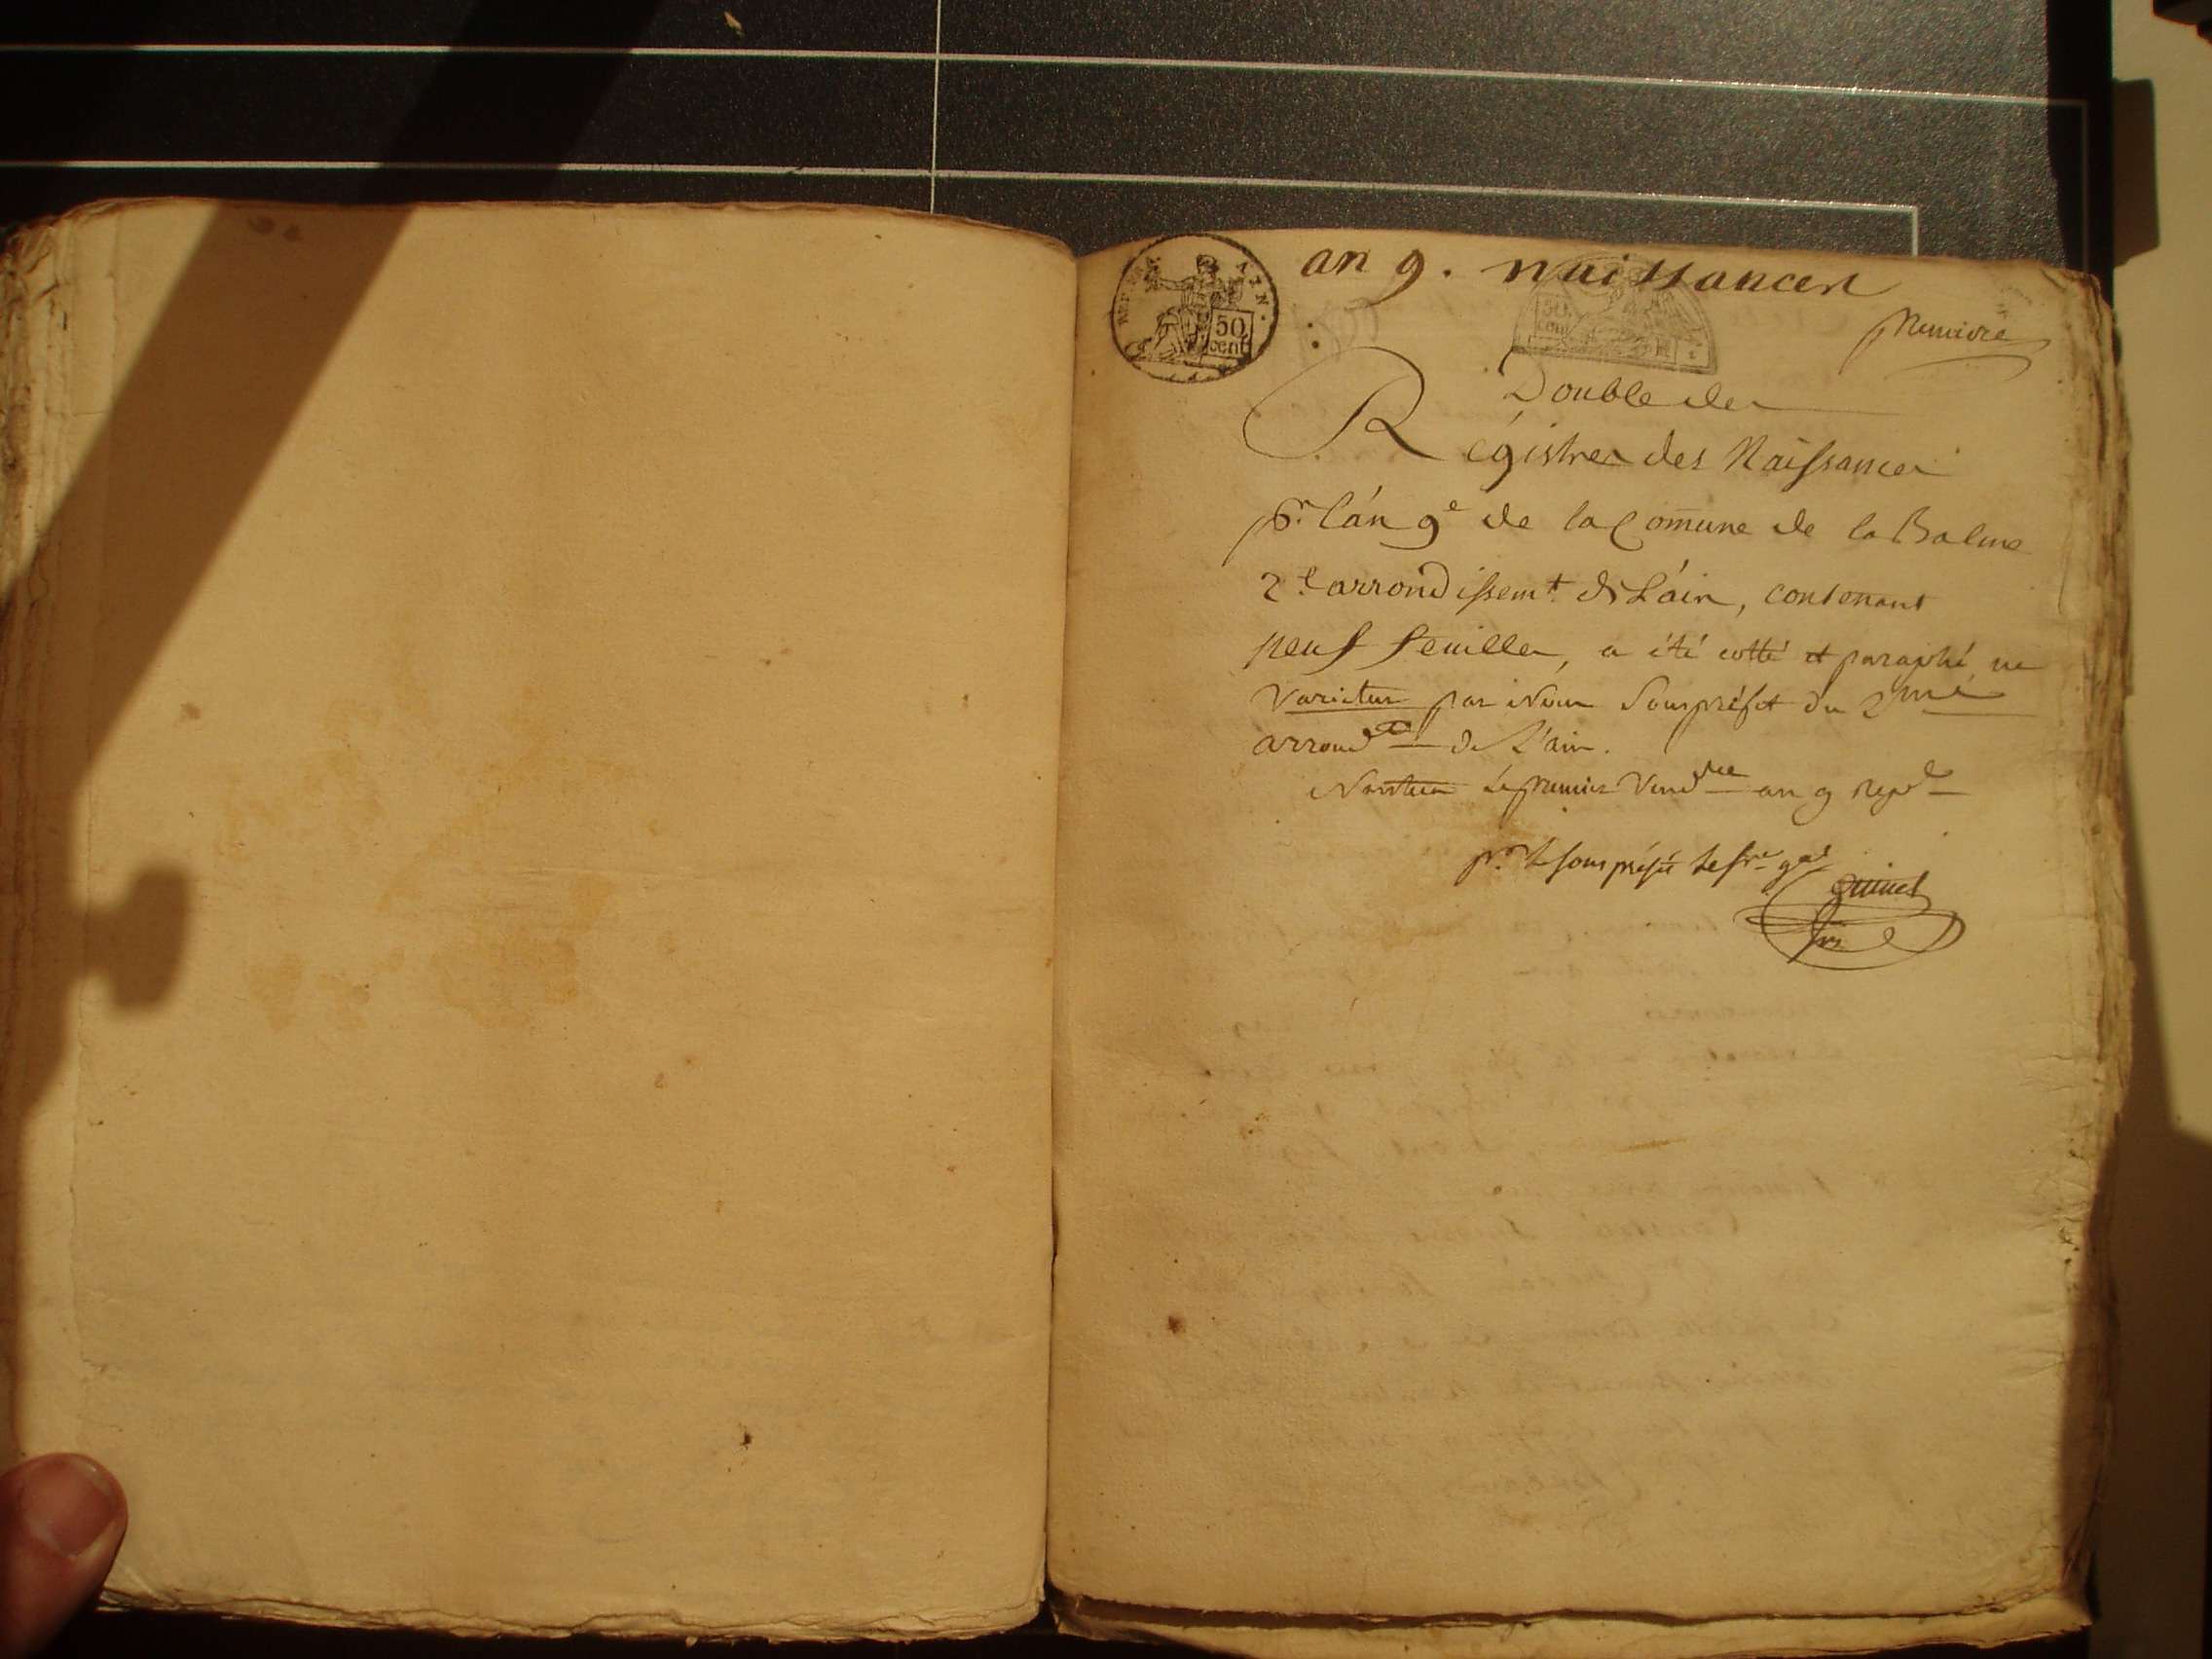 an 9. naissances
50 cent
50. cent
Premiere
Double des
Régistres des Naissances
pr. l'án 9e de la Com̄une de la Balme
2.e arrondissemt. de L'áin, contenant
neuf feuilles, a été cotté et paraphé ne
Varietur par Nous Souspréfet du 2me
arrondt de L'ain.
Nantua Le premier Vendre an 9 repe
pr. Le souspréfet le sre. gal